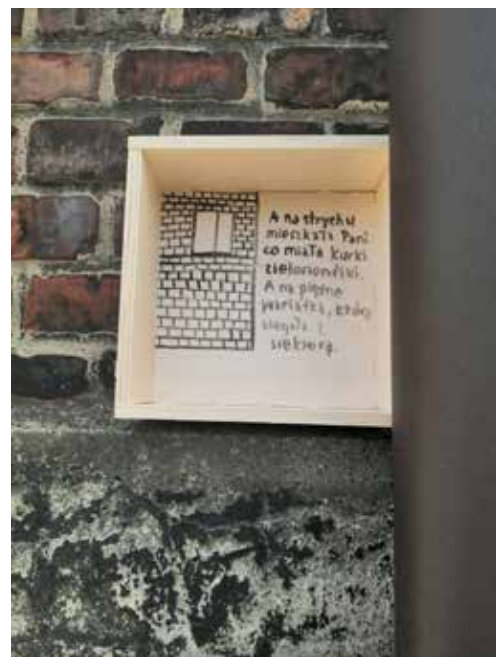 A na strychu
mieszkała Pani
co miała kurki
zielononóżki.
A na piętrze
wariatka, która
biegała z
siekierą.